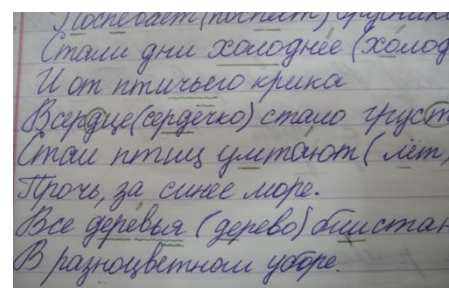 Поспевает (поспеет) брусника
Стали дни холоднее (холод
И от птичьего крика
В сердце (сердечко) стало груст
Стаи птиц улетают (лёт)
Прочь, за синее море.
Все деревья (дерево) блистан
В разноцветном уборе.